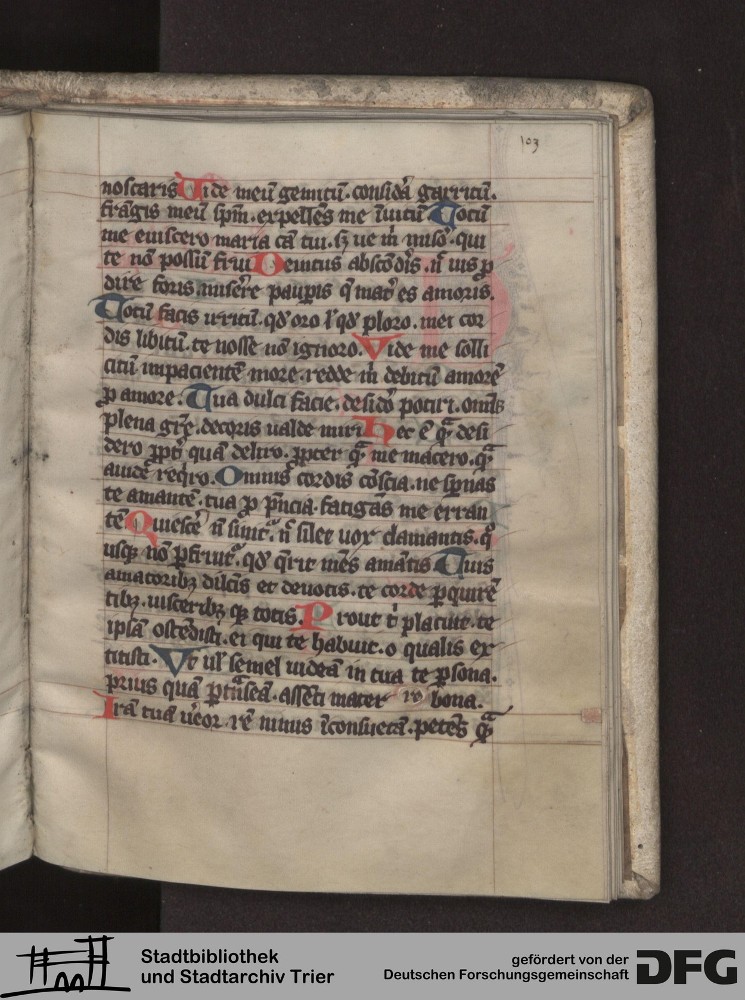 103
noscaris Vide meū gemitū. considā garritū.
frāgis meū spm̄. expellēs me īuitū Totū
me euiscero maria cā tui. sꝫ ue m̄ mis̄o. qui
te nō possū frui Penitus abscōdis. n̄ uis ꝓ
dire foris. misēre paupīs q̄ mat̄ es amoris.
Totū facis irritū. qđ oro ł qđ ploro. mei cor
dis libitū. te nosse nō ignoro. Vide me solli
citū impacientē more. redde m̄ debitū amorē
ꝓ amore. Tua dulci facie. desid̄o potiri. omīs
plena grē. decoris ualde miri Hec ē q̄ desi
dero ꝓpt̄ quā deliro. ꝓpter q̄ me macero. q̄
auidē req̄ro. Omniū cordis cōscia. ne spnas
te amantē. tua ꝓ pn̄cia. fatigās me erran
tē Quiescē n̄ sinit. n̄ silet uox clamantis. q°
usqꝫ nō ꝑfruit. qđ q̄rit mēs amātis Tuis
amatoribꝫ dulcis et deuotis. te corde ꝑquirē
tibꝫ. uisceribꝫ qꝫ totis. Prout t̄ placuit. te
ipsā ostēdisti. ei qui te habuit. o qualis ex
titisti. Vt uł semel uideā in tua te ꝑsona.
prius quā ꝑtn̄seā. assēti mater bona.
Irā tuā ūeor. rē minus īconsuetā. petēs q̄
Stadtbibliothek
und Stadtarchiv Trier
gefördert von der
Deutschen Forschungsgemeinschaft
DFG